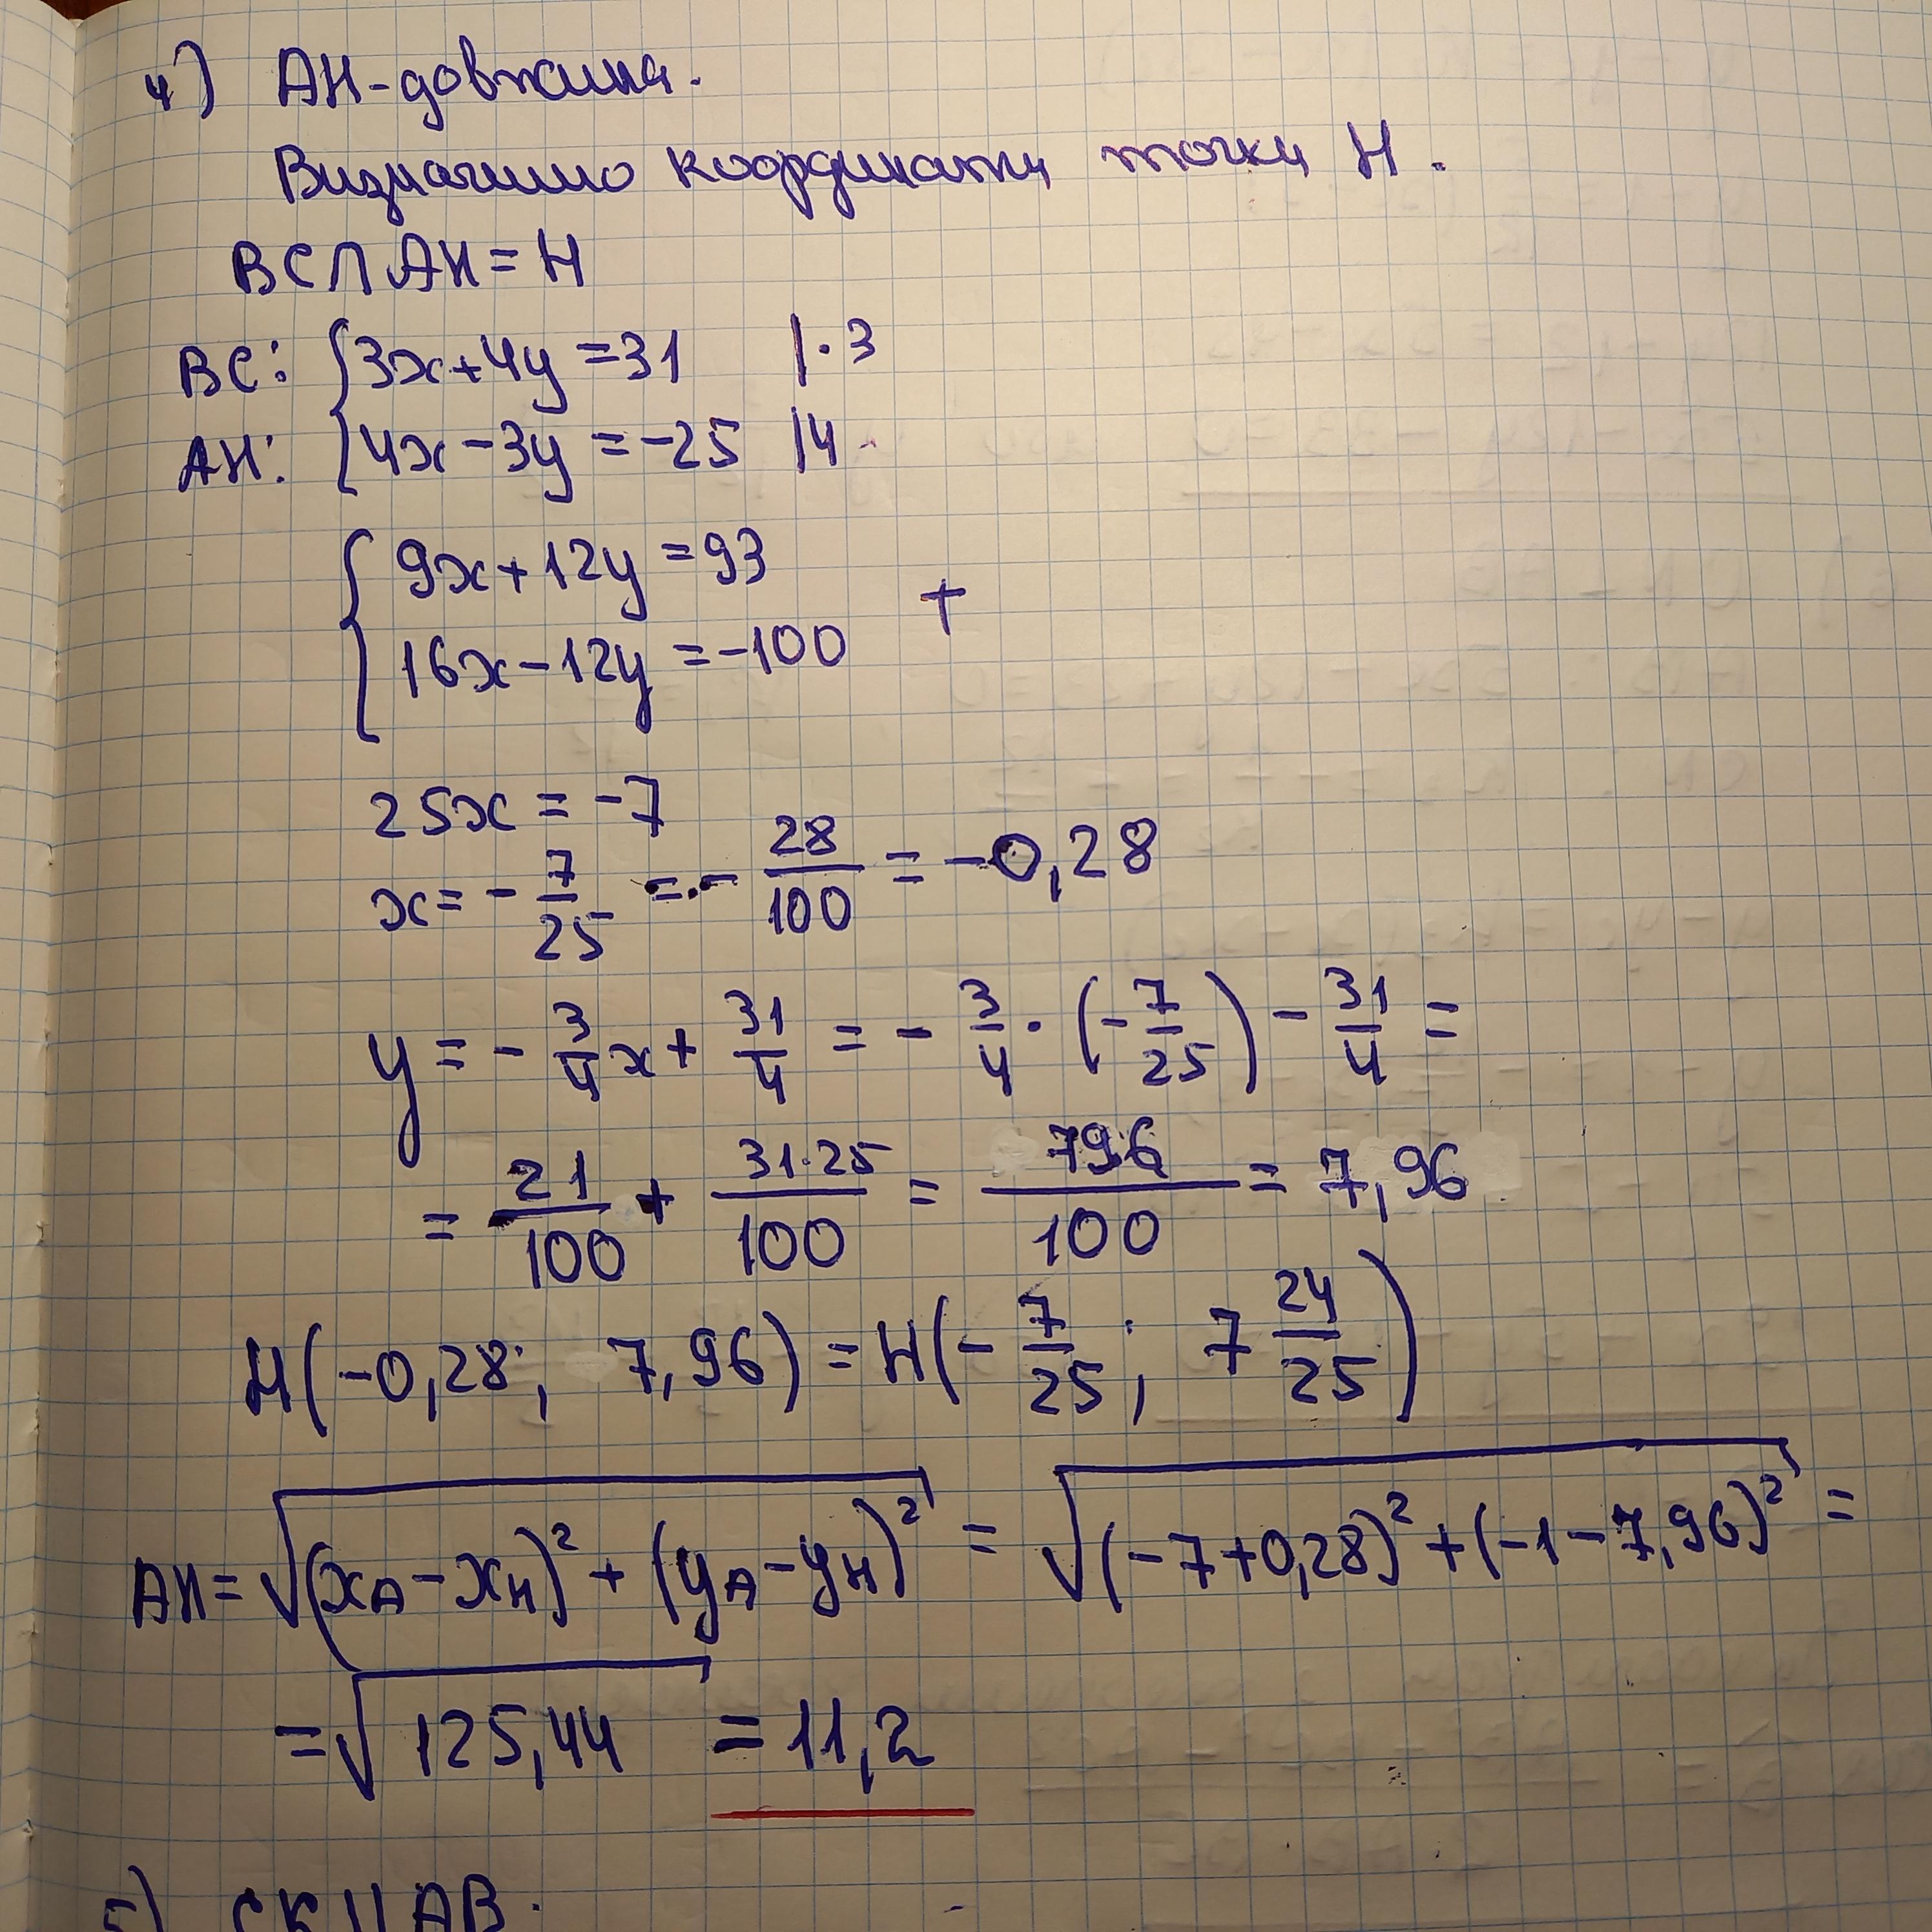 4) AH-довжина.
Визначимо координати точки H.
BC∩AH=H
BC: {3x+4y=31 |·3
AH: {4x-3y=-25 |4
{9x+12y=93
+
16x-12y=-100
25x=-7
x=-7/25=-28/100=-0,28
y=-3/4x+31/4=-3/4·(-7/25)-31/4=
=21/100+31·25/100=796/100=7,96
H(-0,28; 7,96)=H(-7/25; 7 24/25)
AH=√((x_A-x_H)²+(y_A-y_H)²)=√((-7+0,28)²+(-1-7,96)²)=
=√125,44=11,2
5) CK || AB.